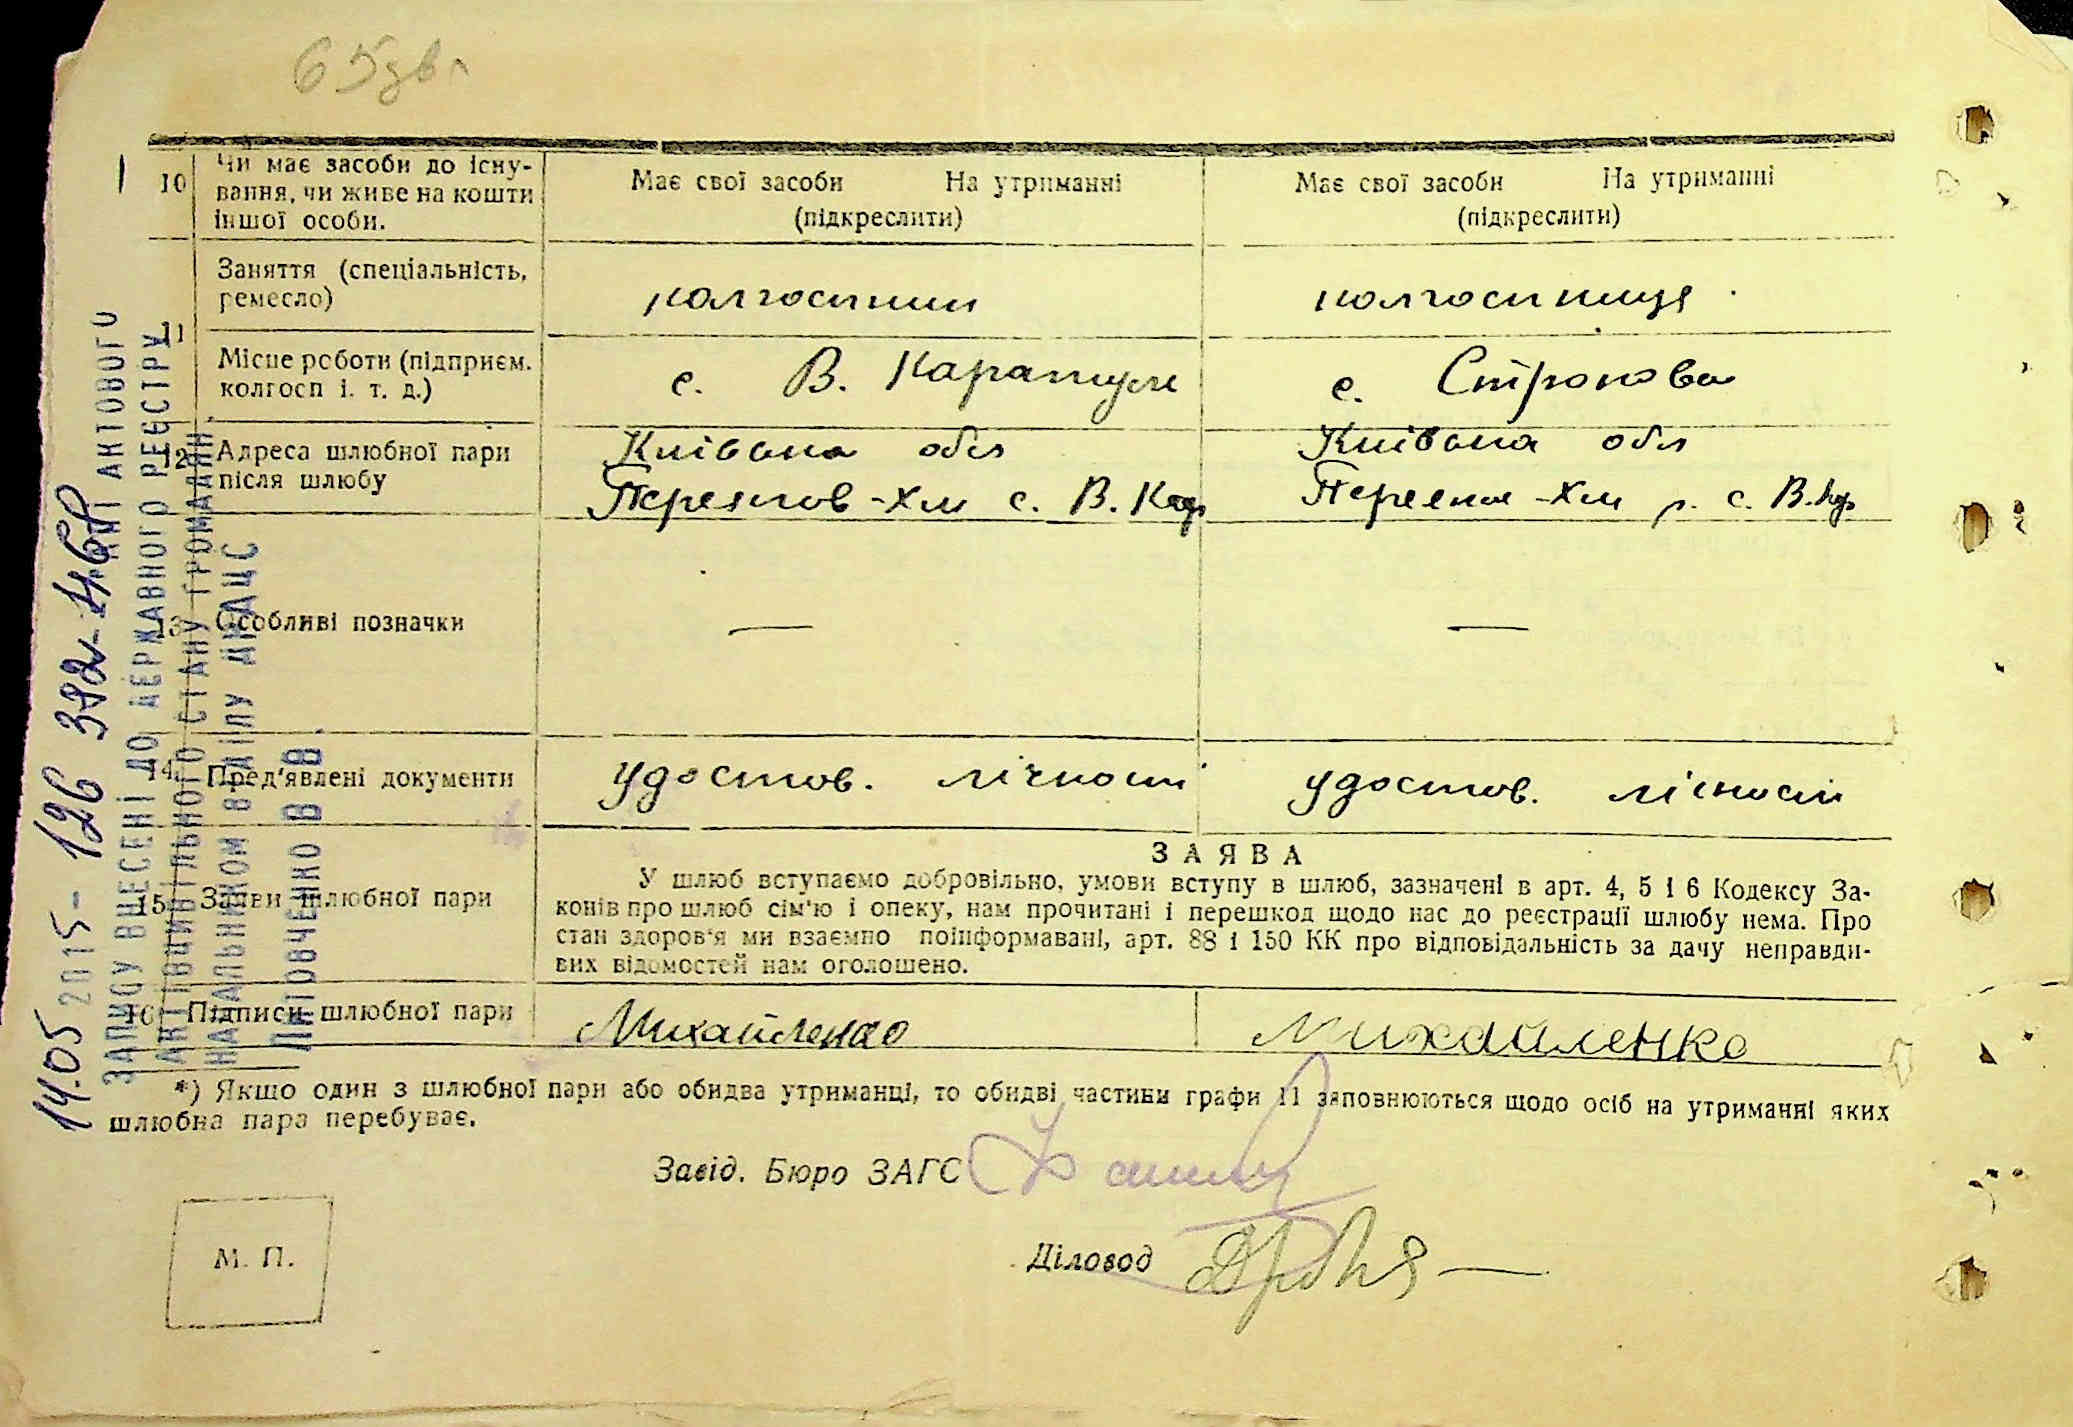 65 зв.
10 Чи має засоби до існу-
вання, чи живе на кошти
іншої особи.
Має свої засоби На утриманні
(підкреслити)
Має свої засоби На утриманні
(підкреслити)
11
Заняття (спеціальність,
ремесло)
колгоспник
колгоспниця
Місце роботи (підприєм.
колгосп і. т. д.)
с. В. Каратуль
с. Строкова
12 Адреса шлюбної пари
після шлюбу
Київська обл
Переяслов-Хм с. В. Кар
Київська обл
Переясл-Хм р. с. В. Кр
13 Особливі позначки
—
—
14. Пред'явлені документи
Удостов. лічності
Удостов. лічності
15 Заяви шлюбної пари
ЗАЯВА
У шлюб вступаємо добровільно, умови вступу в шлюб, зазначені в арт. 4, 5 і 6 Кодексу За-
конів про шлюб сім'ю і опеку, нам прочитані і перешкод щодо нас до реєстрації шлюбу нема. Про
стан здоров'я ми взаємно поінформавані, арт. 88 і 150 КК про відповідальність за дачу неправди-
вих відомостей нам оголошено.
16 Підписи шлюбної пари
Михайленко
Михайленко
*) Якщо один з шлюбної пари або обидва утриманці, то обидві частини графи 11 заповнюються щодо осіб на утриманні яких
шлюбна пара перебуває.
Завід. Бюро ЗАГС
Діловод
М. П.
14.05 2015 - 126
АНІ АКТОВОГО
ЗАПИСУ ВНЕСЕНІ ДО ДЕРЖАВНОГО РЕЄСТРУ
АКТІВ ЦИВІЛЬНОГО СТАНУ ГРОМАДЯН
НАЧАЛЬНИКОМ ВІДІЛУ
В В